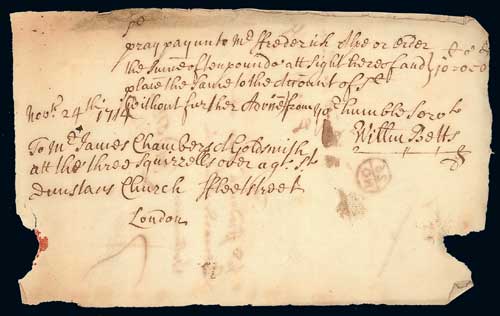 Sr
pray pay unto Mr Frederick or order
the Sume of ten pounds att sight hereof and
place the Same to the Account of Sr
Novbr 24th 1714 without further Advice from yor humble Servt
Willm Betts
To Mr James Chambers Goldsmith
att the three Squirrells over agt St
Dunstans Church ffleetstreet
London